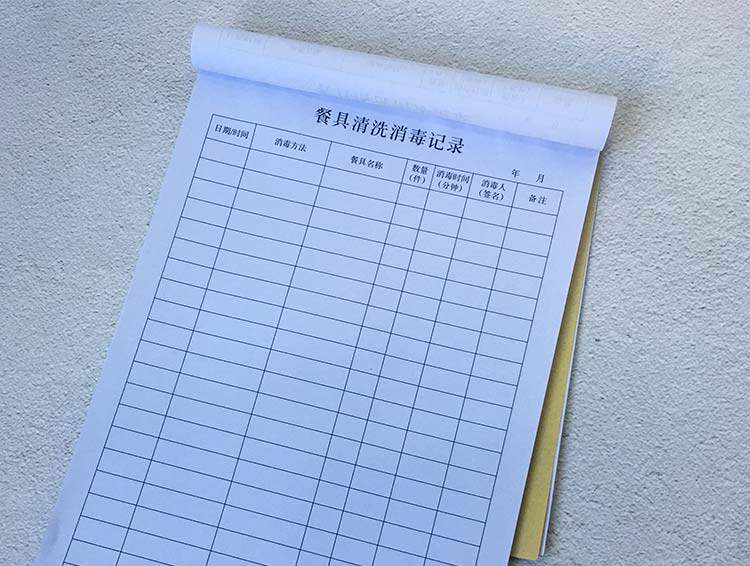 餐具清洗消毒记录
年 月
日期/时间 消毒方法 餐具名称 数量(件) 消毒时间(分钟) 消毒人(签名) 备注